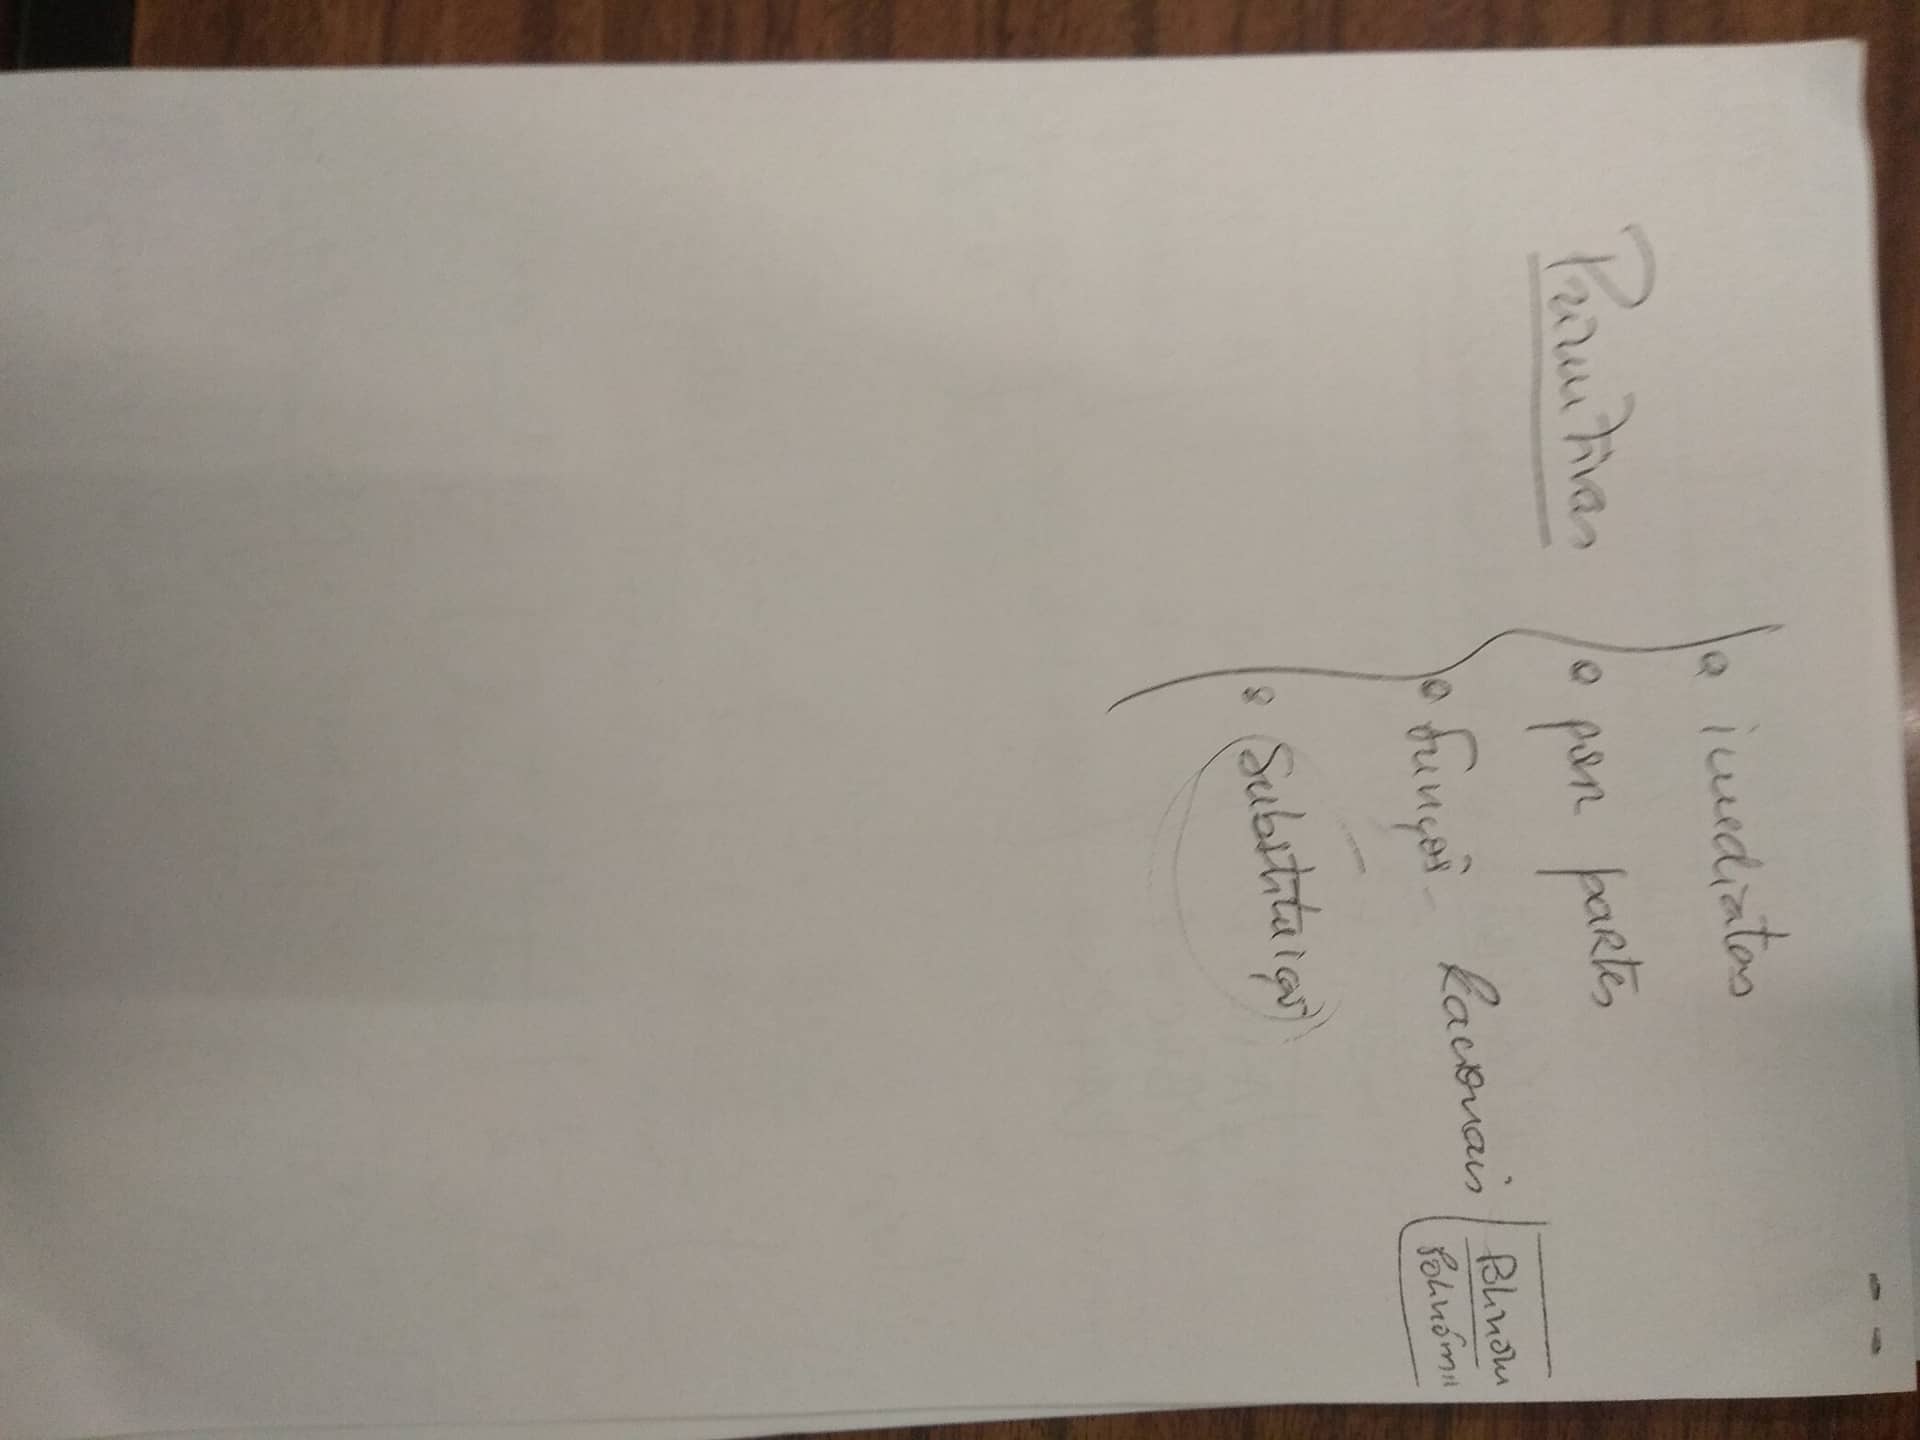 Primitivas
imediatas
por partes
funções Racionais
Polinóm
Polinóm
Substituição